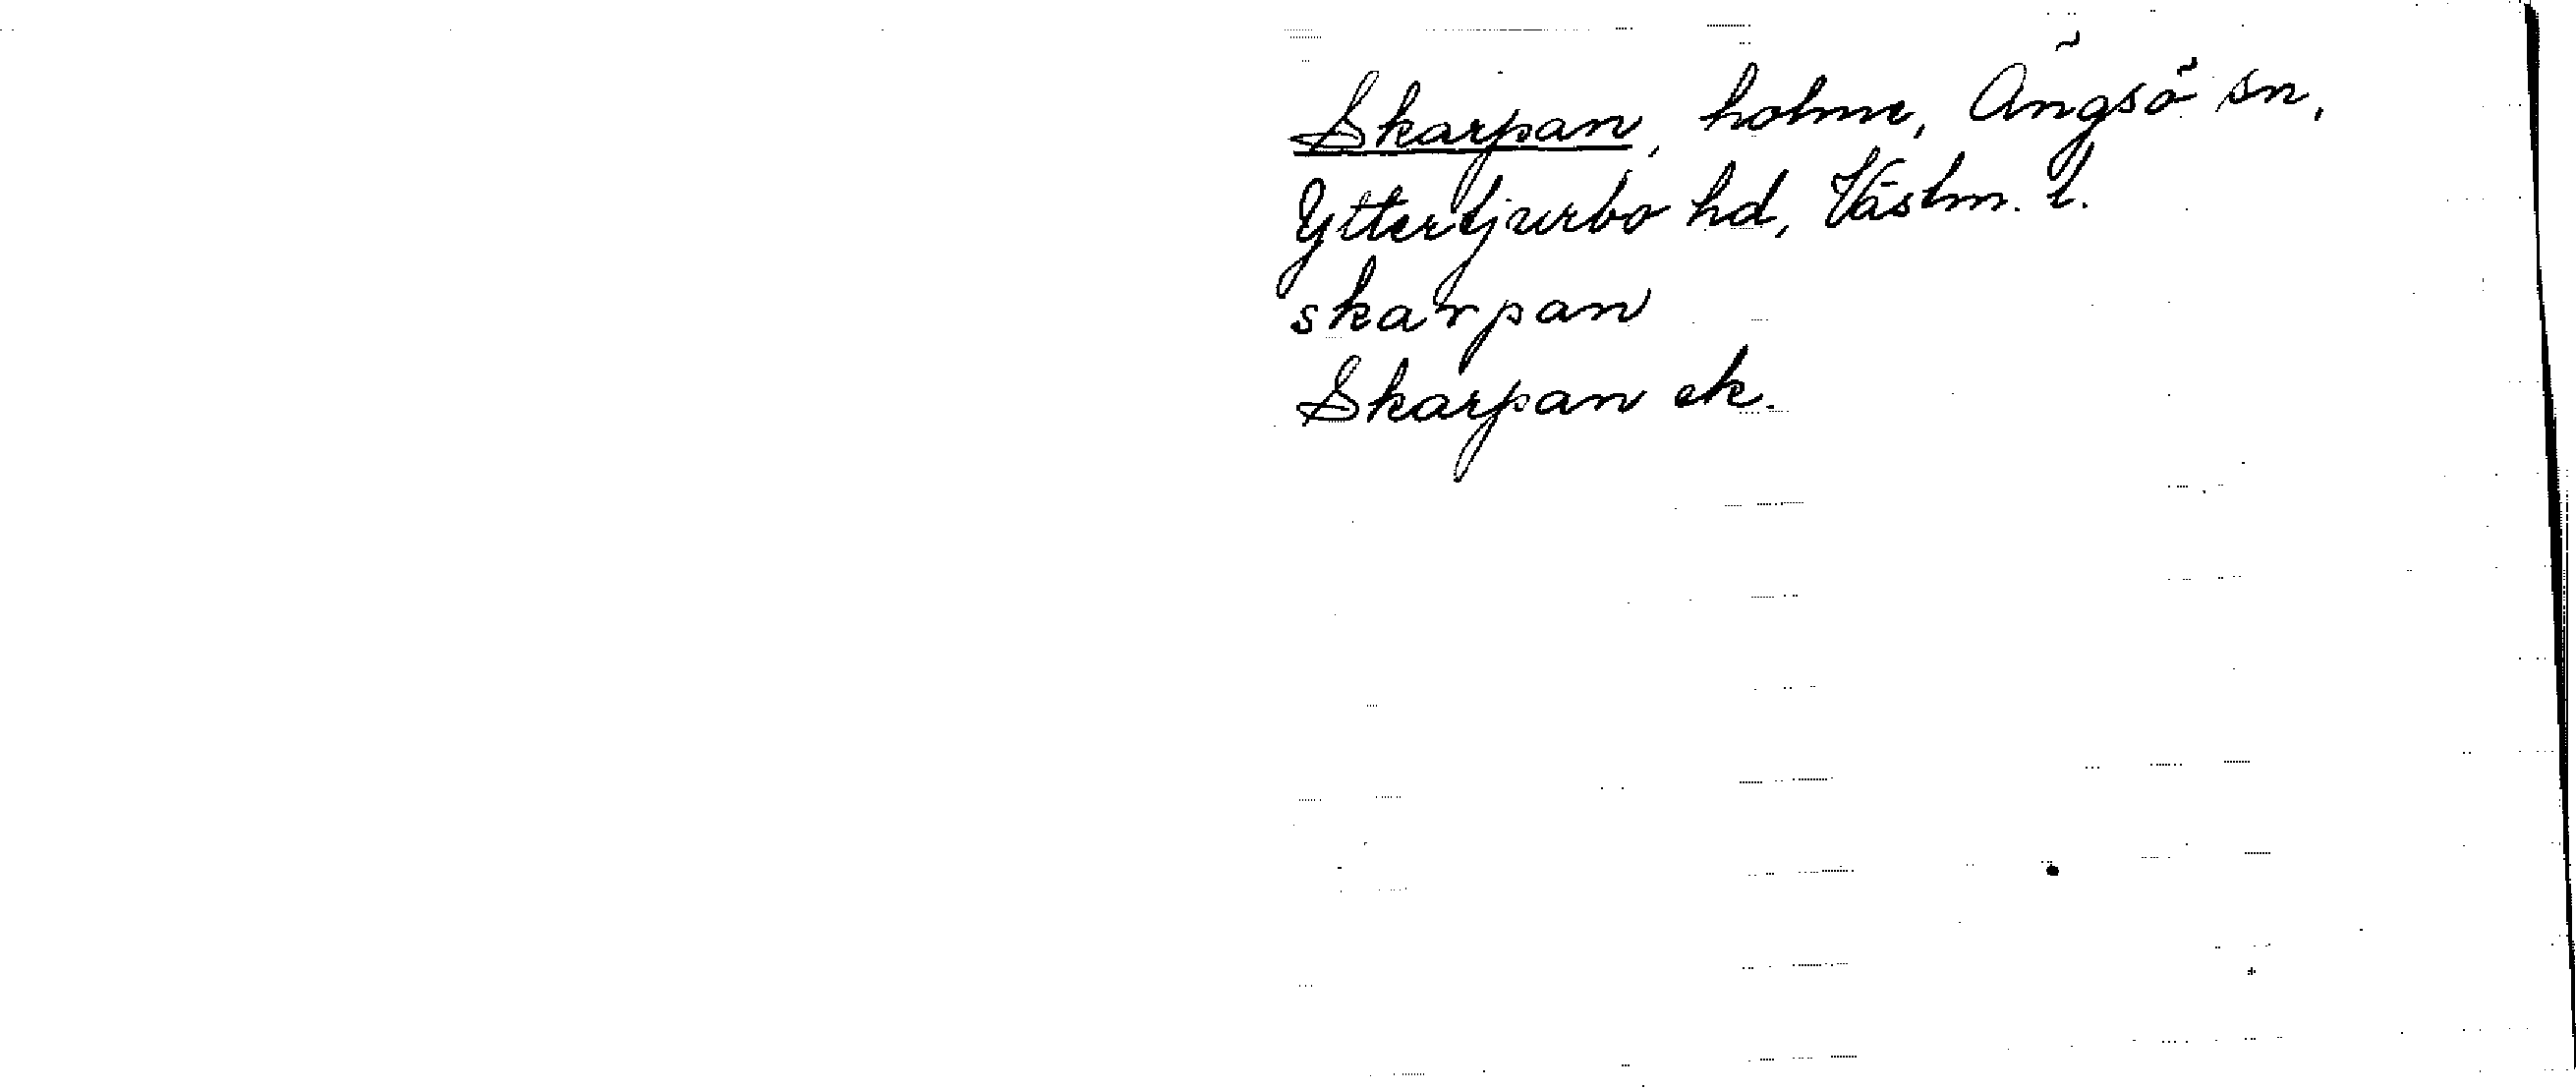 Skarpan, holme, Ängsö sn,
Yttertjurbo hd, Västm. l.
skarpan
Skarpan ek.